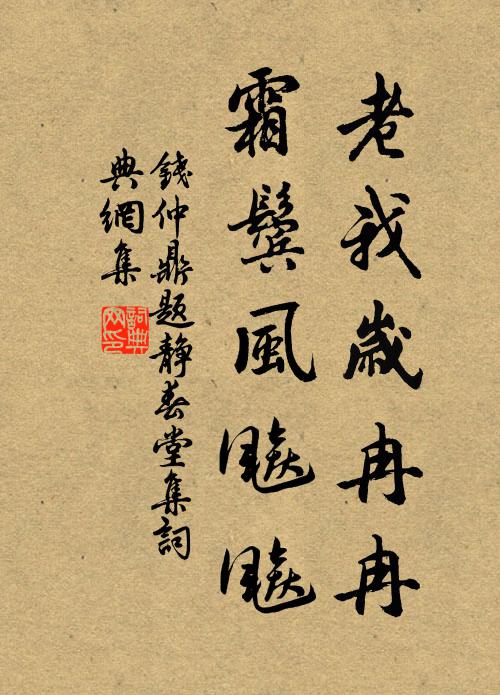 老我歲冉冉
霜鬢風颼颼
錢仲鼎題靜春堂集詞
典網集
詞典
网印